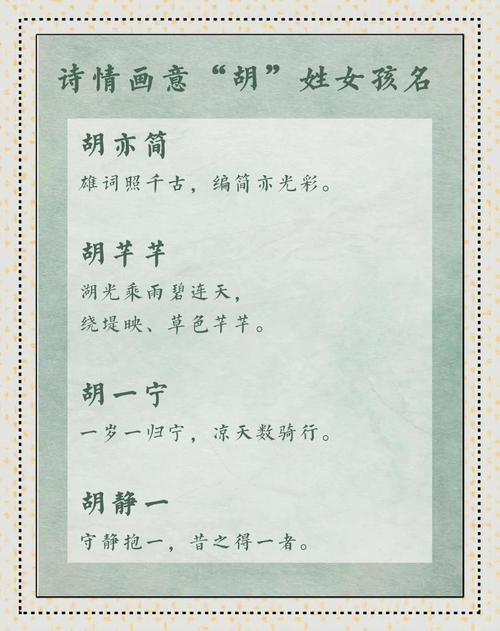 诗情画意“胡”姓女孩名
胡亦简
雄词照千古，编简亦光彩。
胡芊芊
湖光乘雨碧连天，
绕堤映、草色芊芊。
胡一宁
一岁一归宁，凉天数骑行。
胡静一
守静抱一，昔之得一者。